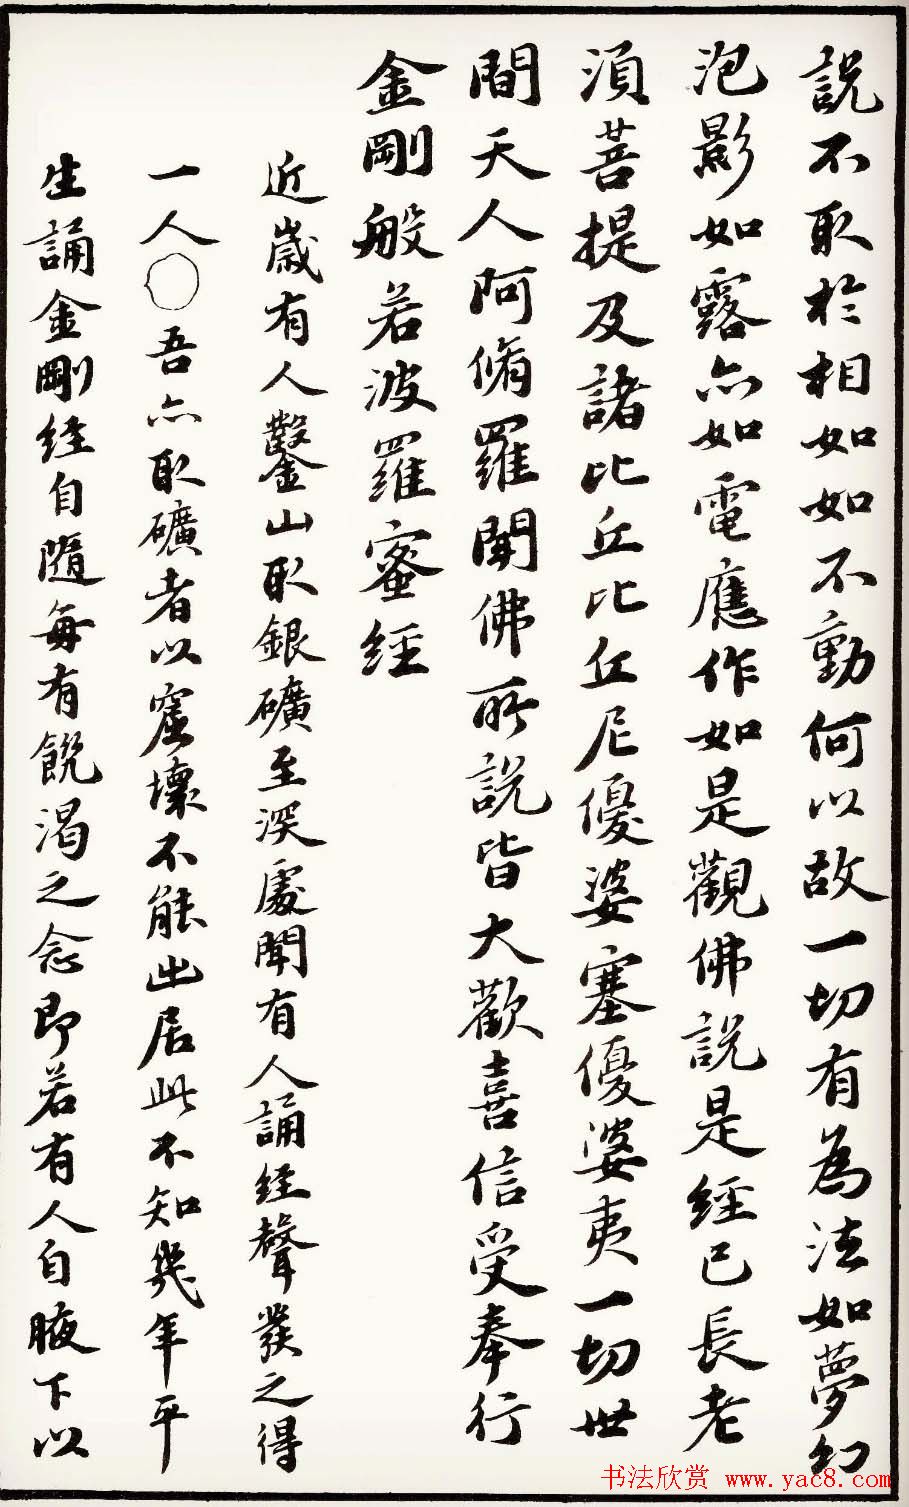 說不取於相如如不動何以故一切有為法如夢幻
泡影如露亦如電應作如是觀佛說是經已長老
須菩提及諸比丘比丘尼優婆塞優婆夷一切世
間天人阿脩羅聞佛所說皆大歡喜信受奉行
金剛般若波羅蜜經
近歲有人鑿山取銀礦至深處聞有人誦經聲發之得
一人〇吾亦取礦者以窟壞不能出居此不知幾年平
生誦金剛經自隨每有飢渴之念即若有人自腋下以
书法欣赏 www.yac8.com